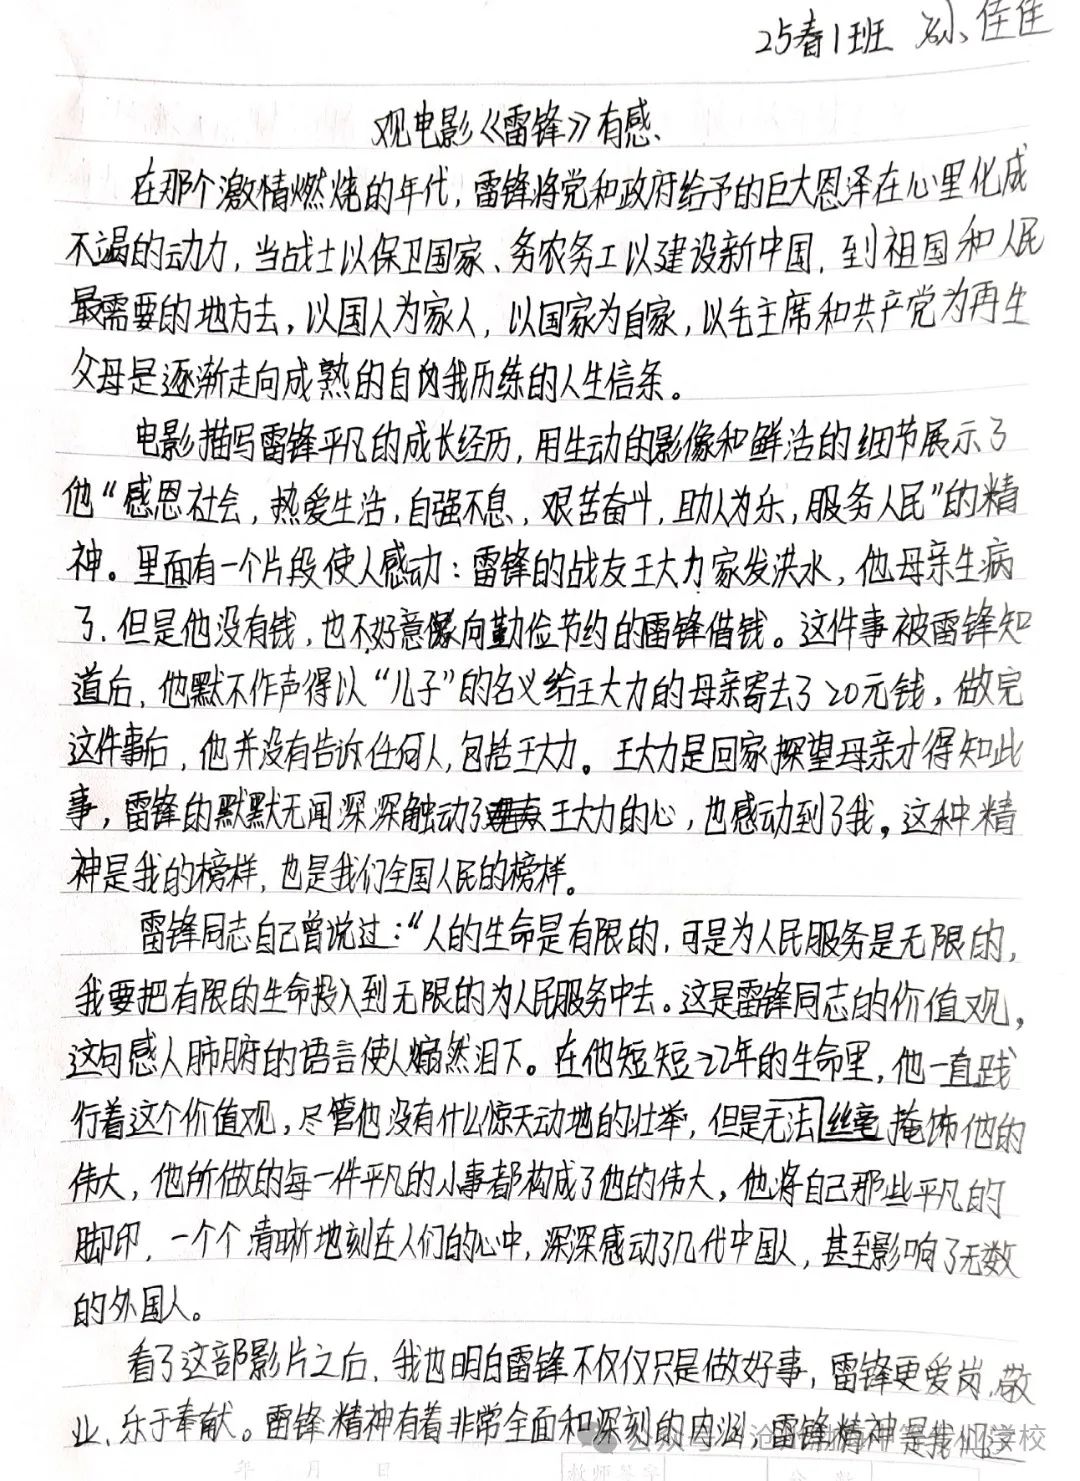 25春1班 孙佳佳
观电影《雷锋》有感
在那个激情燃烧的年代，雷锋将党和政府给予的巨大恩泽在心里化成
不竭的动力，当战士以保卫国家、务农务工以建设新中国，到祖国和人民
最需要的地方去，以国人为家人，以国家为自家，以毛主席和共产党为再生
父母是逐渐走向成熟的自我历练的人生信条。
电影描写雷锋平凡的成长经历，用生动的影像和鲜活的细节展示了
他“感恩社会，热爱生活，自强不息，艰苦奋斗，助人为乐，服务人民”的精
神。里面有一个片段使人感动：雷锋的战友王大力家发洪水，他母亲生病
了，但是他没有钱，也不好意向勤俭节约的雷锋借钱。这件事被雷锋知
道后，他默不作声得以“儿子”的名义给王大力的母亲寄去了20元钱，做完
这件事后，他并没有告诉任何人，包括王大力。王大力是回家探望母亲才得知此
事，雷锋的默默无闻深深触动了王大力的心，也感动到了我。这种精
神是我的榜样，也是我们全国人民的榜样。
雷锋同志自己曾说过：“人的生命是有限的，可是为人民服务是无限的，
我要把有限的生命投入到无限的为人民服务中去。这是雷锋同志的价值观，
这句感人肺腑的语言使人然泪下。在他短短22年的生命里，他一直践
行着这个价值观，尽管他没有什么惊天动地的壮举，但是无法丝毫掩饰他的
伟大，他所做的每一件平凡的小事都构成了他的伟大，他将自己那些平凡的
脚印，一个个清晰地刻在人们的心中，深深感动了几代中国人，甚至影响了无数
的外国人。
看了这部影片之后，我也明白雷锋不仅仅只是做好事，雷锋更爱岗敬
业、乐于奉献。雷锋精神有着非常全面和深刻的内涵，雷锋精神是我们这
年 月 日 教师签字